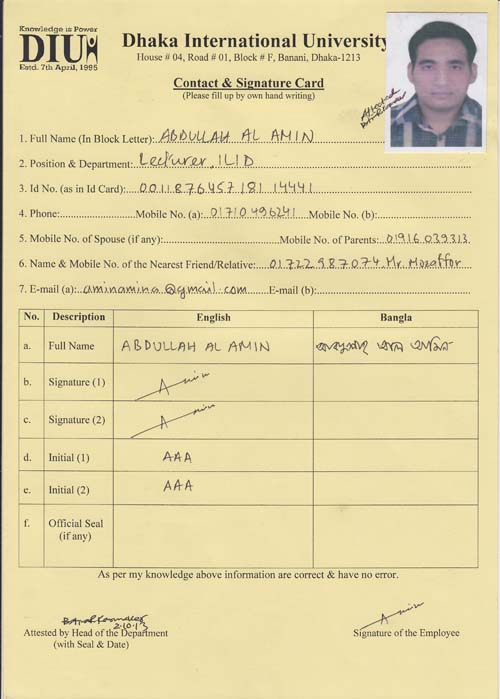 Knowledge is Power
DIU
Estd. 7th April, 1995
Dhaka International University
House # 04, Road # 01, Block # F, Banani, Dhaka-1213
Contact & Signature Card
(Please fill up by own hand writing)
Attested
1. Full Name (In Block Letter): ABDULLAH AL AMIN
2. Position & Department: Lecturer, ILID
3. Id No. (as in Id Card): 0011876457181 14441
4. Phone: Mobile No. (a): 01710496241 Mobile No. (b):
5. Mobile No. of Spouse (if any): Mobile No. of Parents: 01916039313
6. Name & Mobile No. of the Nearest Friend/Relative: 01722987074 Mr. Mozaffor
7. E-mail (a): aminamina@gmail.com E-mail (b):
No. Description English Bangla
a. Full Name ABDULLAH AL AMIN আব্দুল্লাহ আল আমিন
b. Signature (1) Amin
c. Signature (2) Amin
d. Initial (1) AAA
e. Initial (2) AAA
f. Official Seal
(if any)
As per my knowledge above information are correct & have no error.
2.10.13 Amin
Attested by Head of the Department Signature of the Employee
(with Seal & Date)